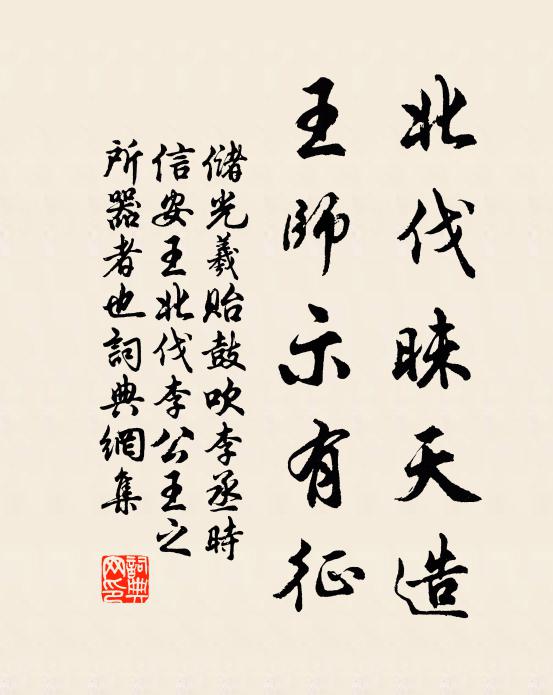 北伐昧天造
王師示有征
儲光羲貽鼓吹李丞時
信安王北伐李公王之
所器者也詞典網集
詞典網印